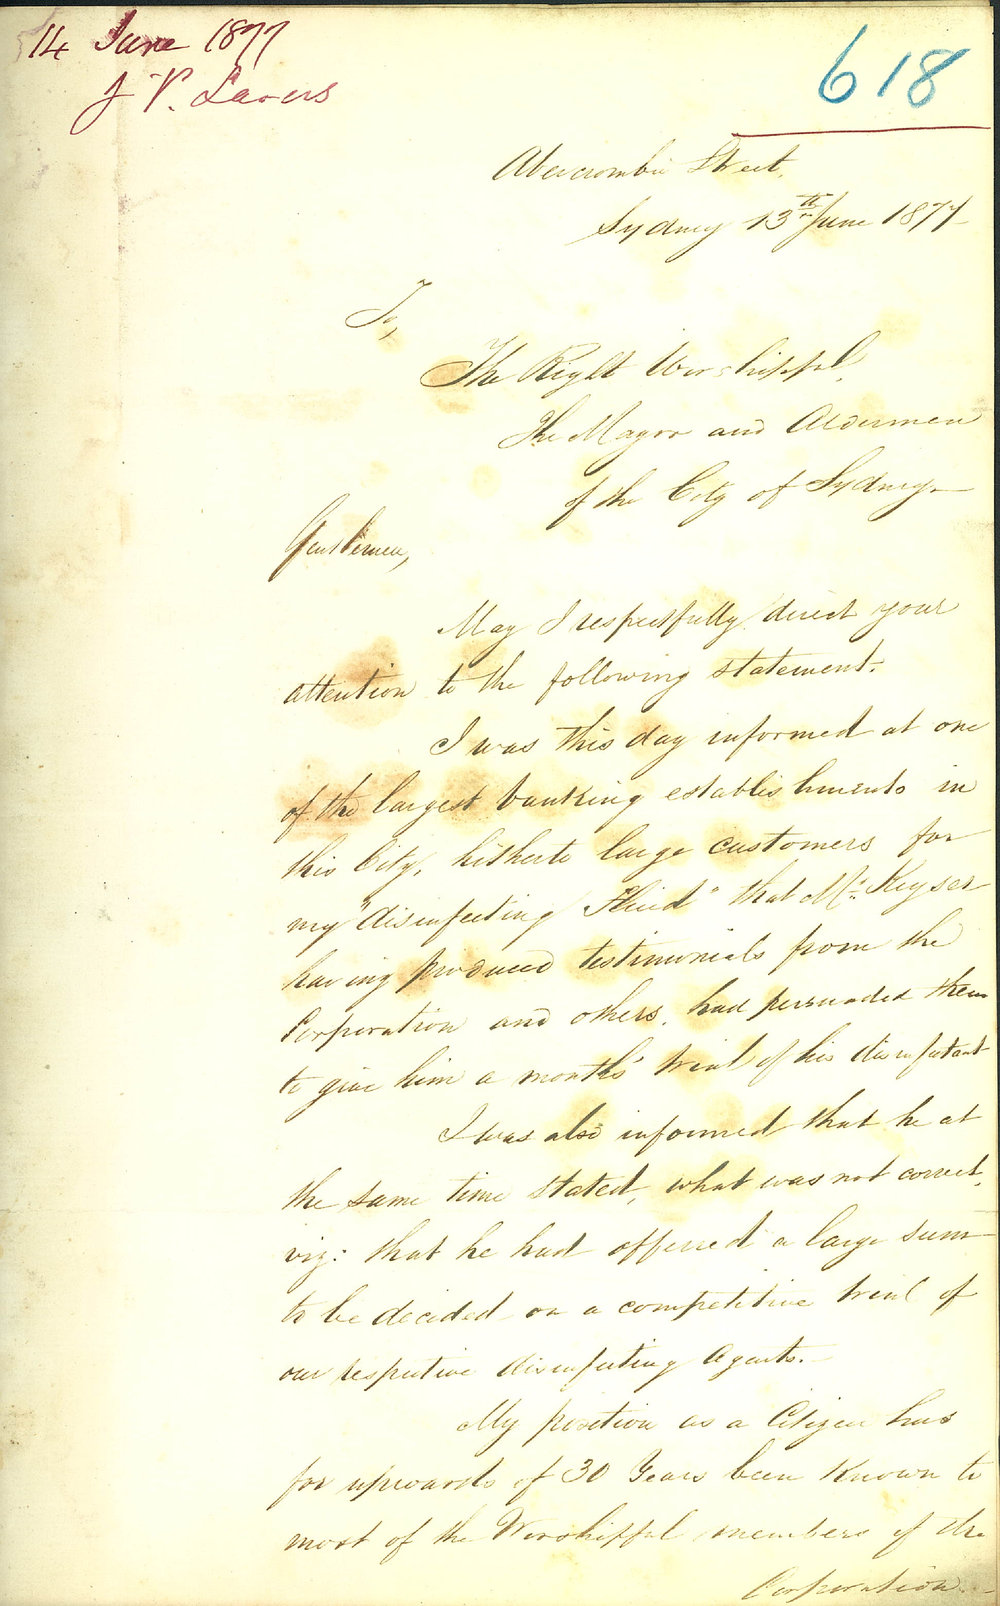 14 June 1877
J V. Lavers
618
Abercrombie Street,
Sydney 13th June 1877
To,
The Right Worshipful,
The Mayor and Aldermen
of the City of Sydney
Gentlemen,
May I respectfully direct your
attention to the following statement.
I was this day informed at one
of the largest banking establishments in
this City, hitherto large customers for
my "disinfecting Fluid" that Mr. Keyser
having produced testimonials from the
Corporation and others, had persuaded them
to give him a months' trial of his disinfectant
I was also informed that he at
the same time stated, what was not correct,
viz: that he had offered a large sum
to be decided on a competitive trial of
our respective disinfecting Agents.
My position as a Citizen has
for upwards of 30 Years been known to
most of the Worshipful members of the
Corporation